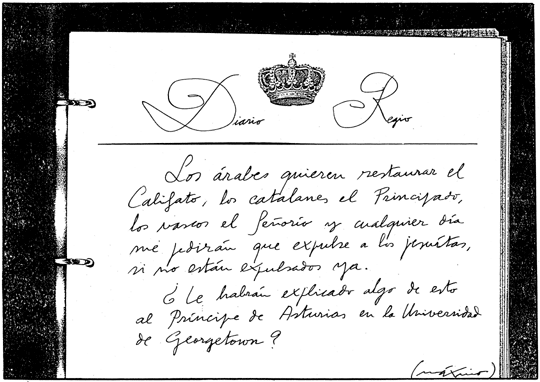 Diario Regio
Los árabes quieren restaurar el
Califato, los catalanes el Principado,
los vascos el Señorío y cualquier día
me pedirán que expulse a los jesuitas,
si no están expulsados ya.
¿Le habrán explicado algo de esto
al Príncipe de Asturias en la Universidad
de Georgetown?
(máximo)